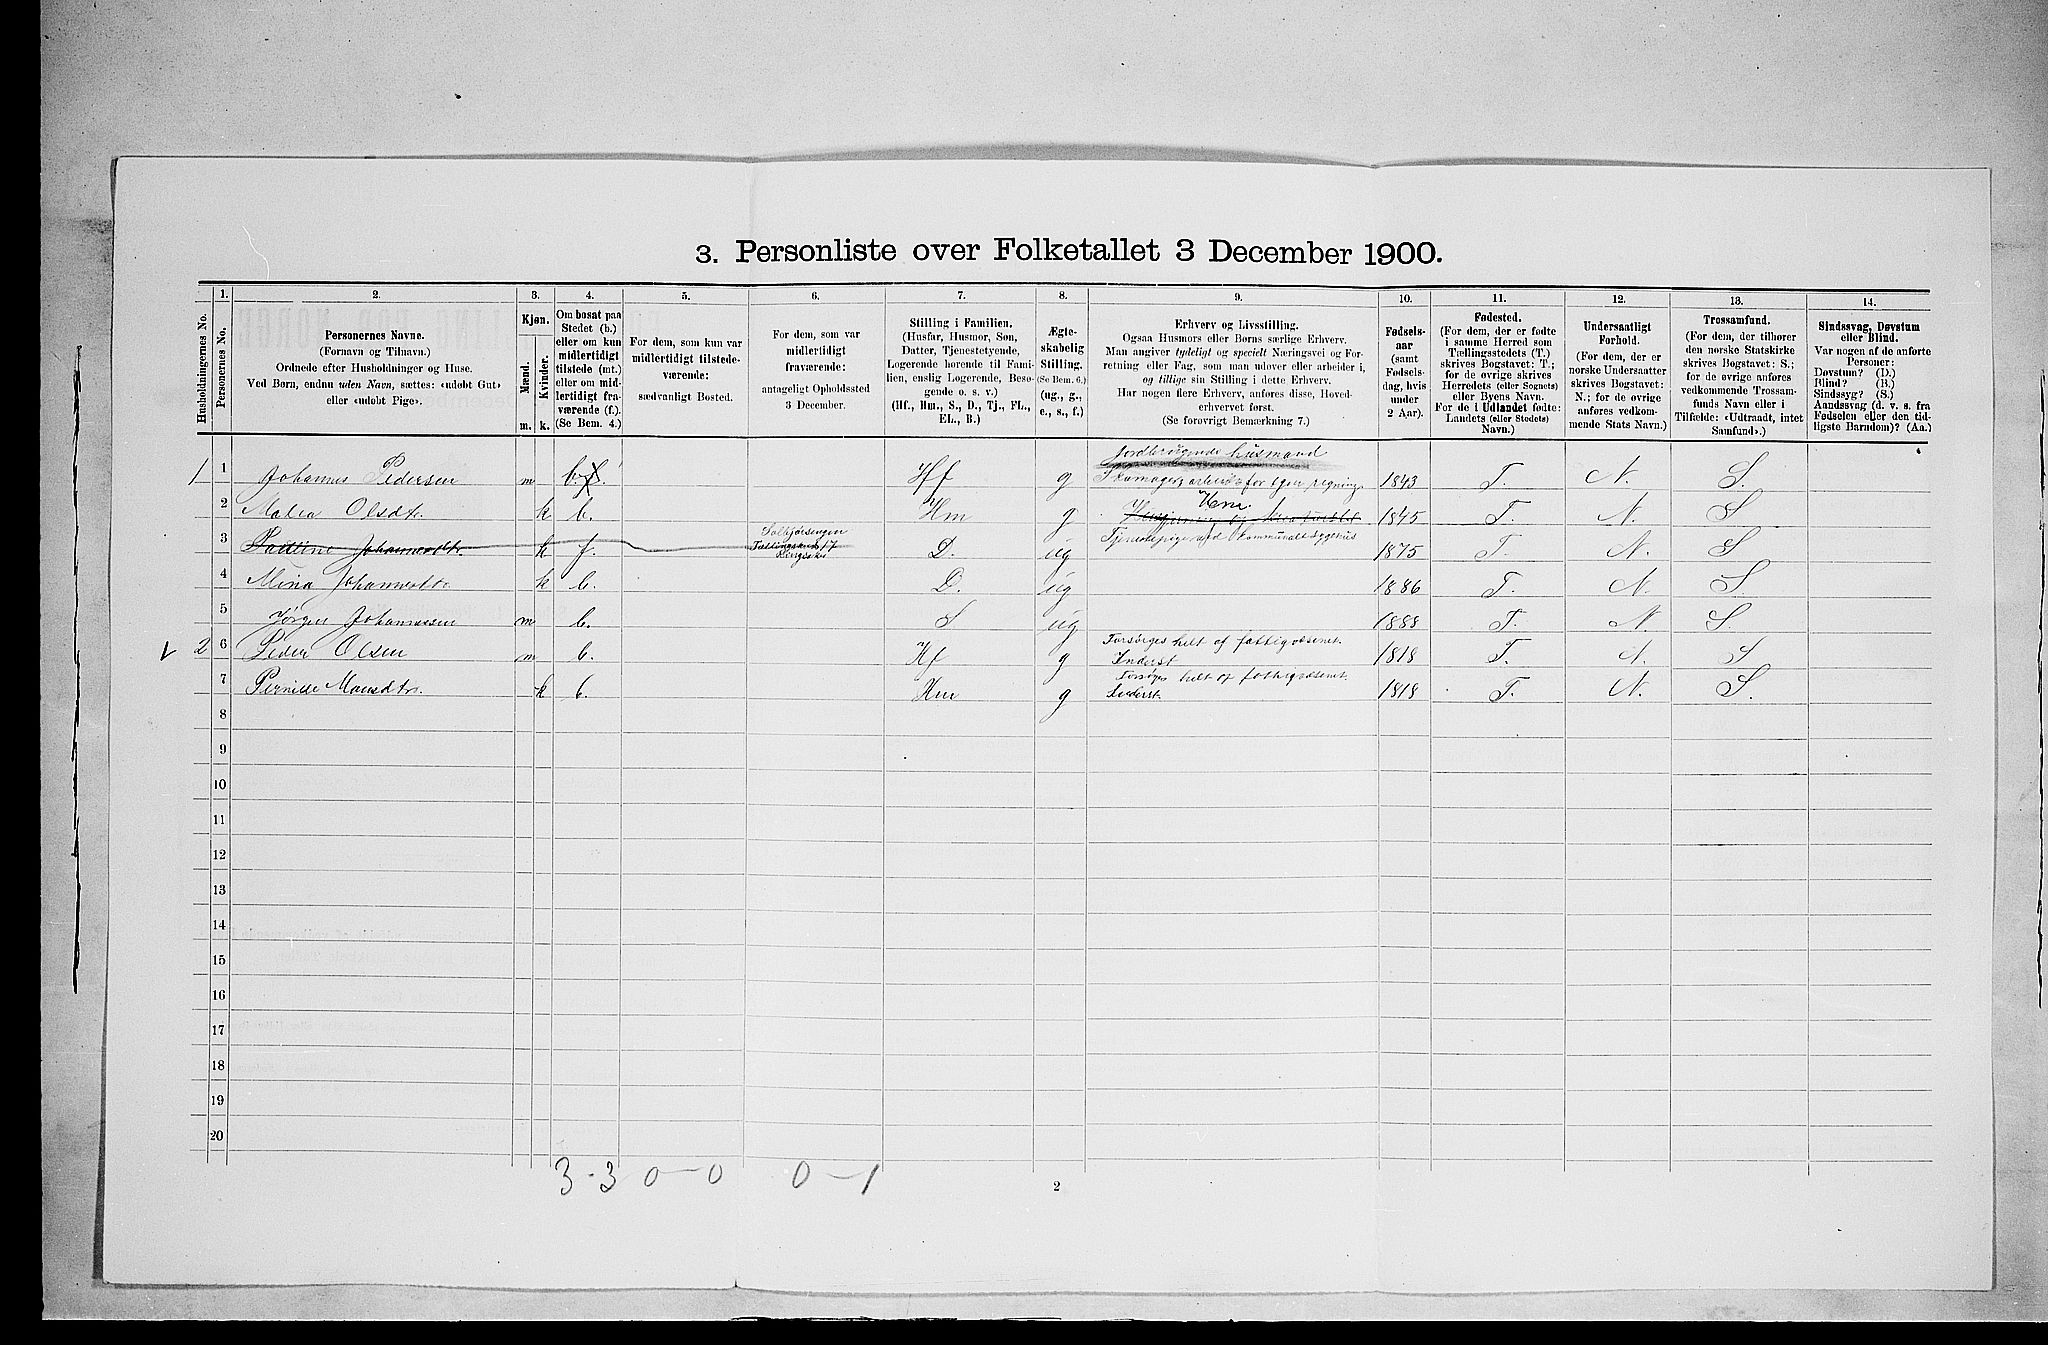 3. Personliste over Folketallet 3 December 1900.
Husholdningernes No.
1.
Personernes No.
2.
Personernes Navne.
(Fornavn og Tilnavn.)
Ordnede efter Husholdninger og Huse.
Ved Børn, endnu uden Navn, sættes: «udøbt Gut»
eller «udøbt Pige».
3.
Kjøn.
Mænd.
Kvinder.
m.
k.
4.
Om bosat paa
Stedet (b.)
eller om kun
midlertidigt
tilstede (mt.)
eller om mid-
lertidigt fra-
værende (f.).
(Se Bem. 4.)
5.
For dem, som kun var
midlertidigt tilstede-
værende:
sædvanligt Bosted.
6.
For dem, som var
midlertidigt
fraværende:
antageligt Opholdssted
3 December.
7.
Stilling i Familien.
(Husfar, Husmor, Søn,
Datter, Tjenestetyende,
Logerende hørende til Fami-
lien, enslig Logerende, Besø-
gende o. s. v.)
(Hf., Hm., S., D., Tj., FL.,
EL., B.)
8.
Ægte-
skabelig
Stilling.
(Se Bem. 6.)
(ug., g.,
e., s., f.)
9.
Erhverv og Livsstilling.
Ogsaa Husmors eller Børns særlige Erhverv.
Man angiver tydeligt og specielt Næringsvei og For-
retning eller Fag, som man udover eller arbeider i,
og tillige sin Stilling i dette Erhverv.
Har nogen flere Erhverv, anføres disse, Hoved-
erhvervet først.
(Se forøvrigt Bemærkning 7.)
10.
Fødsels-
aar
(samt
Fødsels-
dag, hvis
under
2 Aar).
11.
Fødested.
(For dem, der er fødte
i samme Herred som
Tællingsstedets (T.)
skrives Bogstavet: T.;
for de øvrige skrives
Herredets (eller Sognets)
eller Byens Navn.
For de i Udlandet fødte:
Landets (eller Stedets)
Navn.)
12.
Undersaatligt
Forhold.
(For dem, der er
norske Undersaatter
skrives Bogstavet:
N.; for de øvrige
anføres vedkom-
mende Stats Navn.)
13.
Trossamfund.
(For dem, der tilhører
den norske Statskirke
skrives Bogstavet: S.;
for de øvrige anføres
vedkommende Trossam-
funds Navn eller i
Tilfælde: «Udtraadt, intet
Samfund».)
14.
Sindssvag, Døvstum
eller Blind.
Var nogen af de anførte
Personer:
Døvstum? (D.)
Blind? (B.)
Sindssyg? (S.)
Aandssvag (d. v. s. fra
Fødselen eller den tid-
ligste Barndom)? (Aa.)
Jordbrugende husmand
1 1 Johannes Pedersen m b. f. Hf g Skomager, arbeider for egen regning 1843 T. N. S.
Kone
2 Malea Olsdt. k b. Hm g 1845 T. N. S
Solbjørsengen
3 Pauline Johannesdt. k f. Tællingskreds 17 D. ug Tjenestepige ved kommunalt sygehus 1875 T. N. S
Ringsak.
4 Mina Johannesdt. k b. D. ug 1886 T. N. S.
5 Jørgen Johannessen m b. S ug 1888 T. N. S.
V 2 6 Peder Olsen m b. Hf g Forsørges helt af fattigvæsenet. 1818 T. N. S
Inderst
7 Pernille Monsdtr. k b. Hm g Forsørges helt af fattigvæsenet. 1818 T. N. S.
Inderst.
8
9
10
11
12
13
14
15
16
17
18
19
20
3 - 3 0 - 0 0 - 1
2